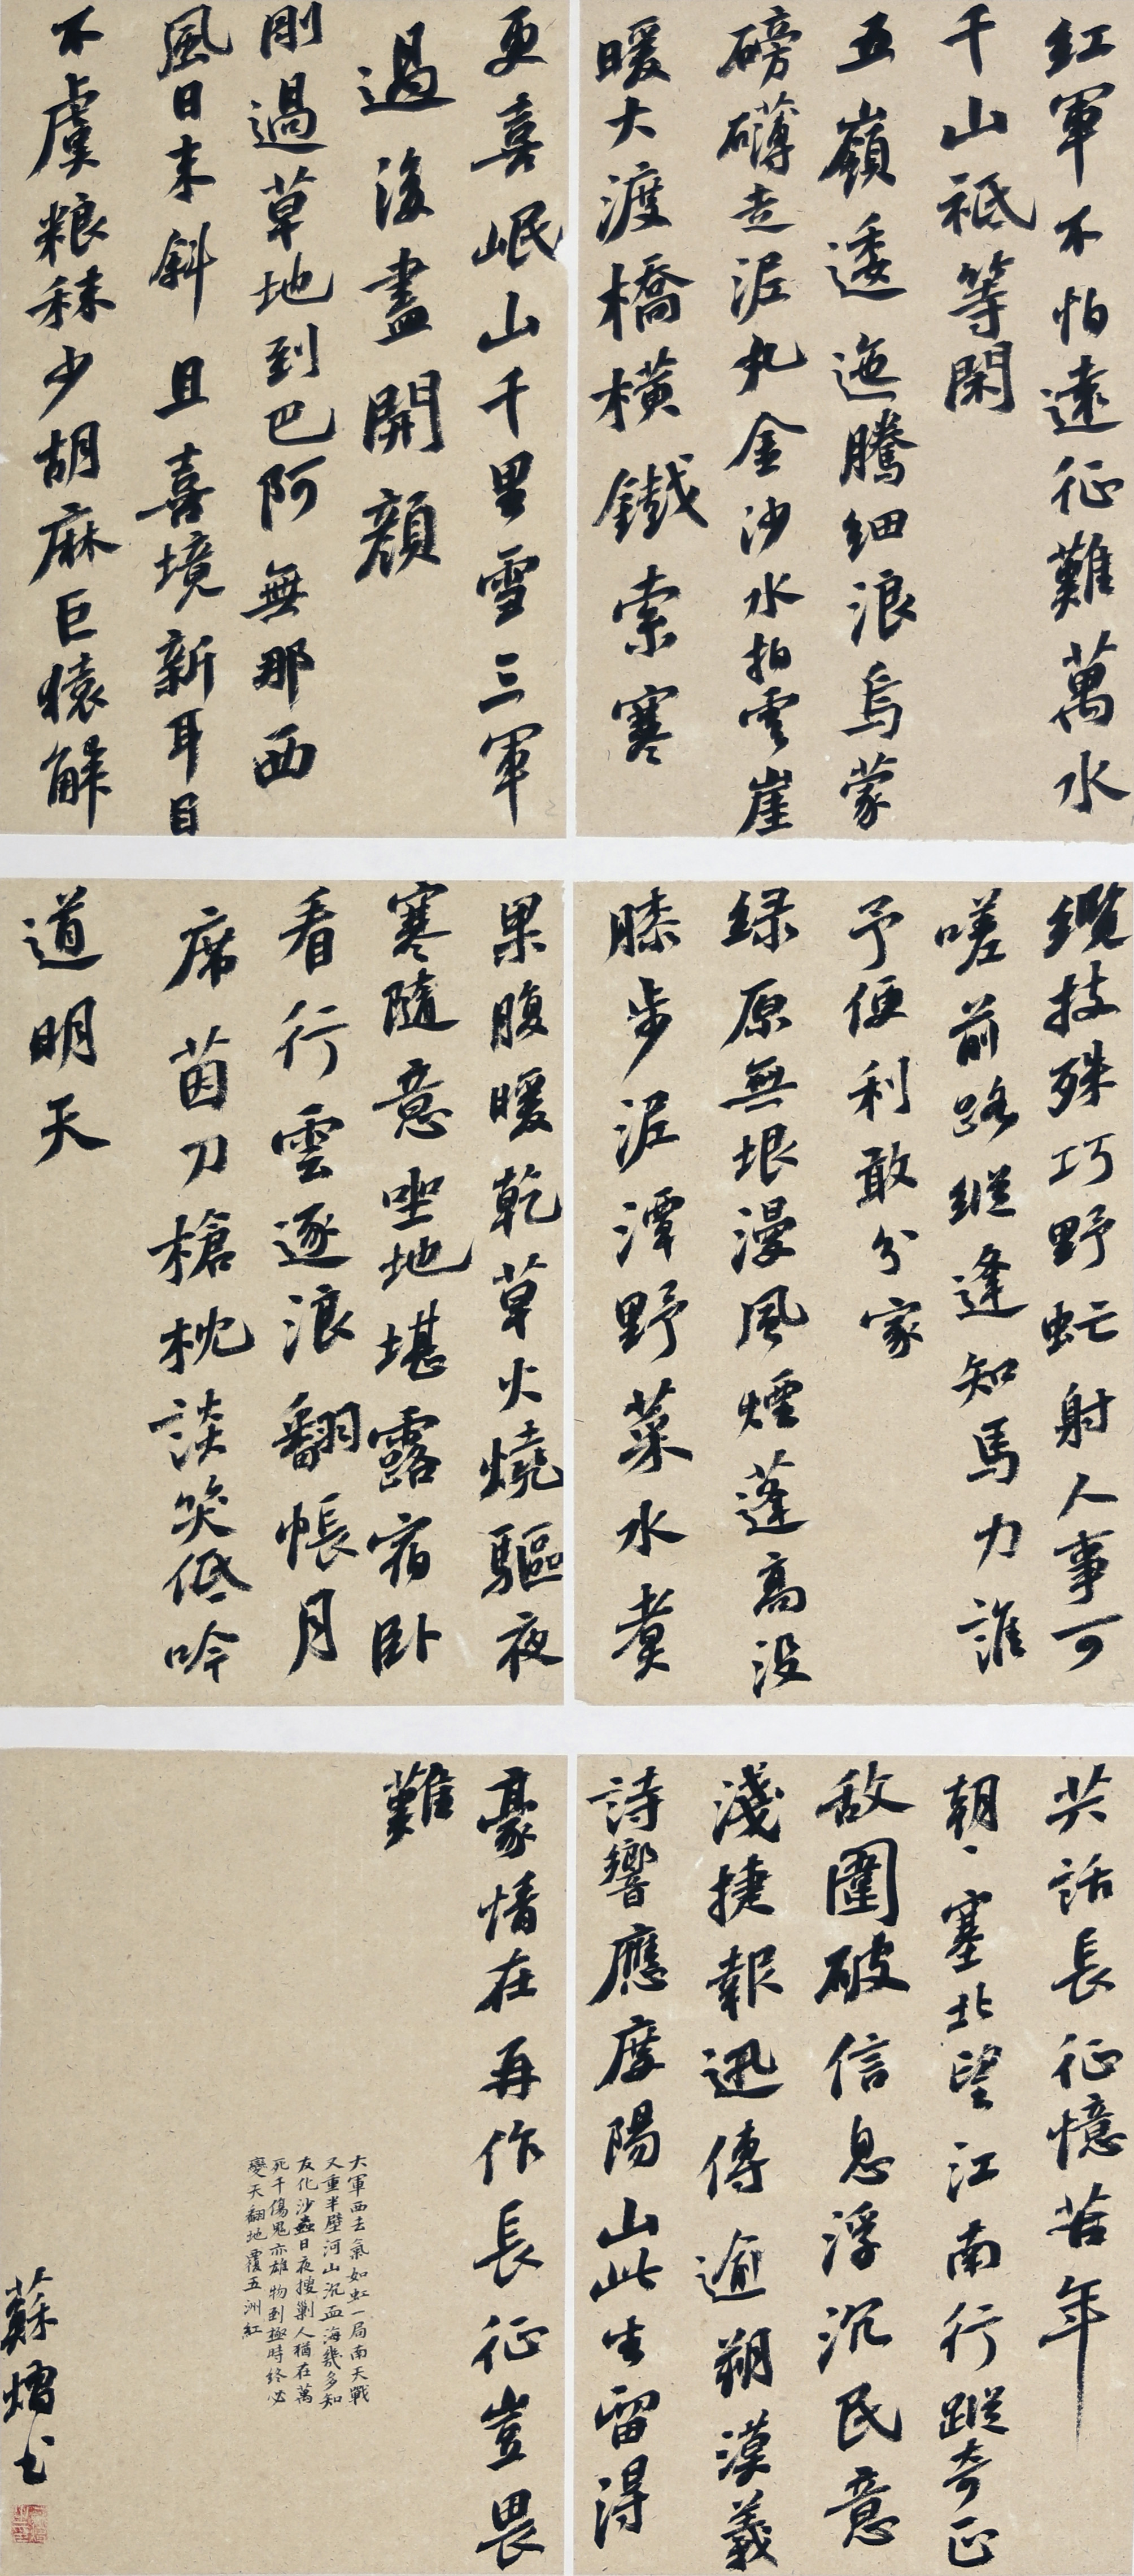 紅軍不怕遠征難萬水
千山祗等閑
五嶺逶迤騰細浪烏蒙
磅礴走泥丸金沙水拍雲崖
暖大渡橋橫鐵索寒
更喜岷山千里雪三軍
過後盡開顏
剛過草地到巴阿無那西
風日未斜且喜境新耳目
不虞粮秣少胡麻巨猿解
纜技殊巧野虻射人事可
嗟前路縱逢知馬力誰
予便利敢分家
緑原無垠漫風煙蓬高没
膝步泥潭野菜水煮
果腹暖乾草火燒驅夜
寒隨意坐地堪露宿卧
看行雲逐浪翻帳月
席茵刀槍枕談笑低吟
道明天
共話長征憶苦年
朝、塞北望江南行蹤奇正
敌圍破信息浮沉民意
淺捷報迅傳逾朔漠義
詩響應摩陽山此生留得
豪情在再作長征豈畏
難
大軍西去氣如虹一局南天戰
又重半壁河山沉血海幾多知
友化沙蟲日夜搜剿人猶在萬
死千傷鬼亦雄物到極時終必
變天翻地覆五洲紅
蘇熠书